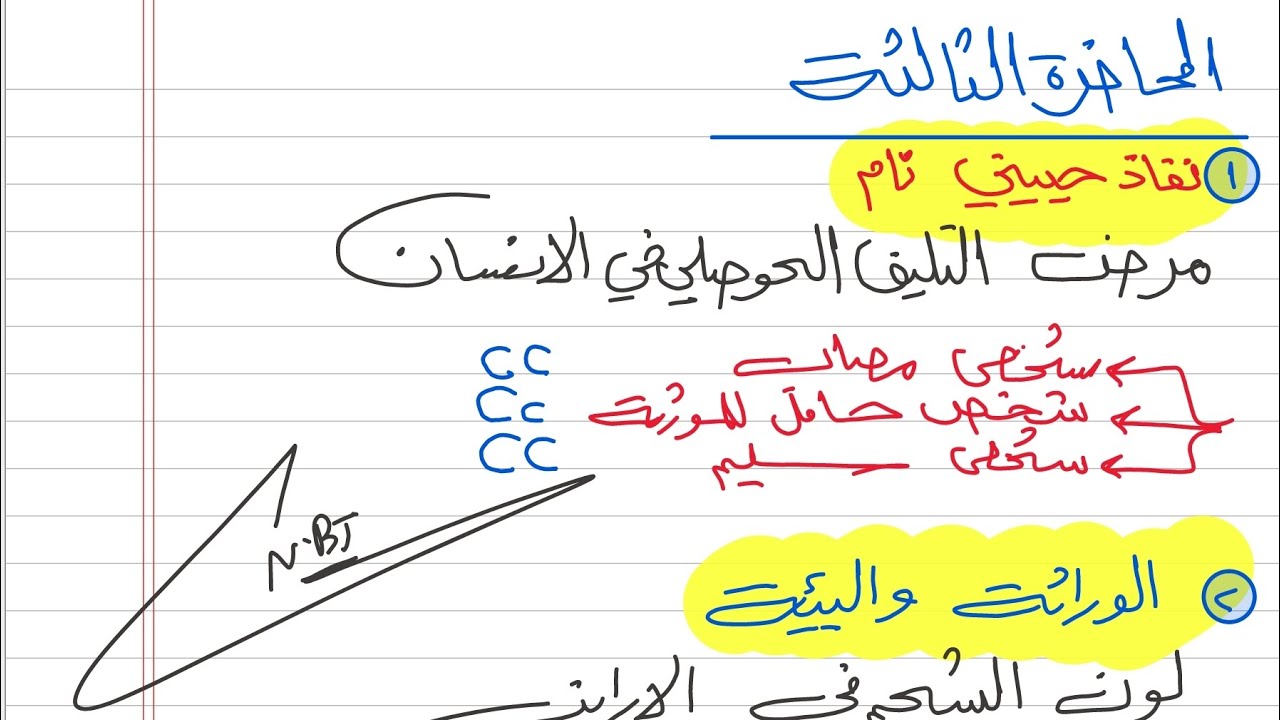 المحاضرة الثالثة
١ نفاذ جيني تام
مرض التليف الحوصلي في الانسان
شخص مصاب CC
شخص حامل للمورثة Cc
شخص سليم CC
N.BJ
٢ الوراثة والبيئة
لون الشحم في الارانب